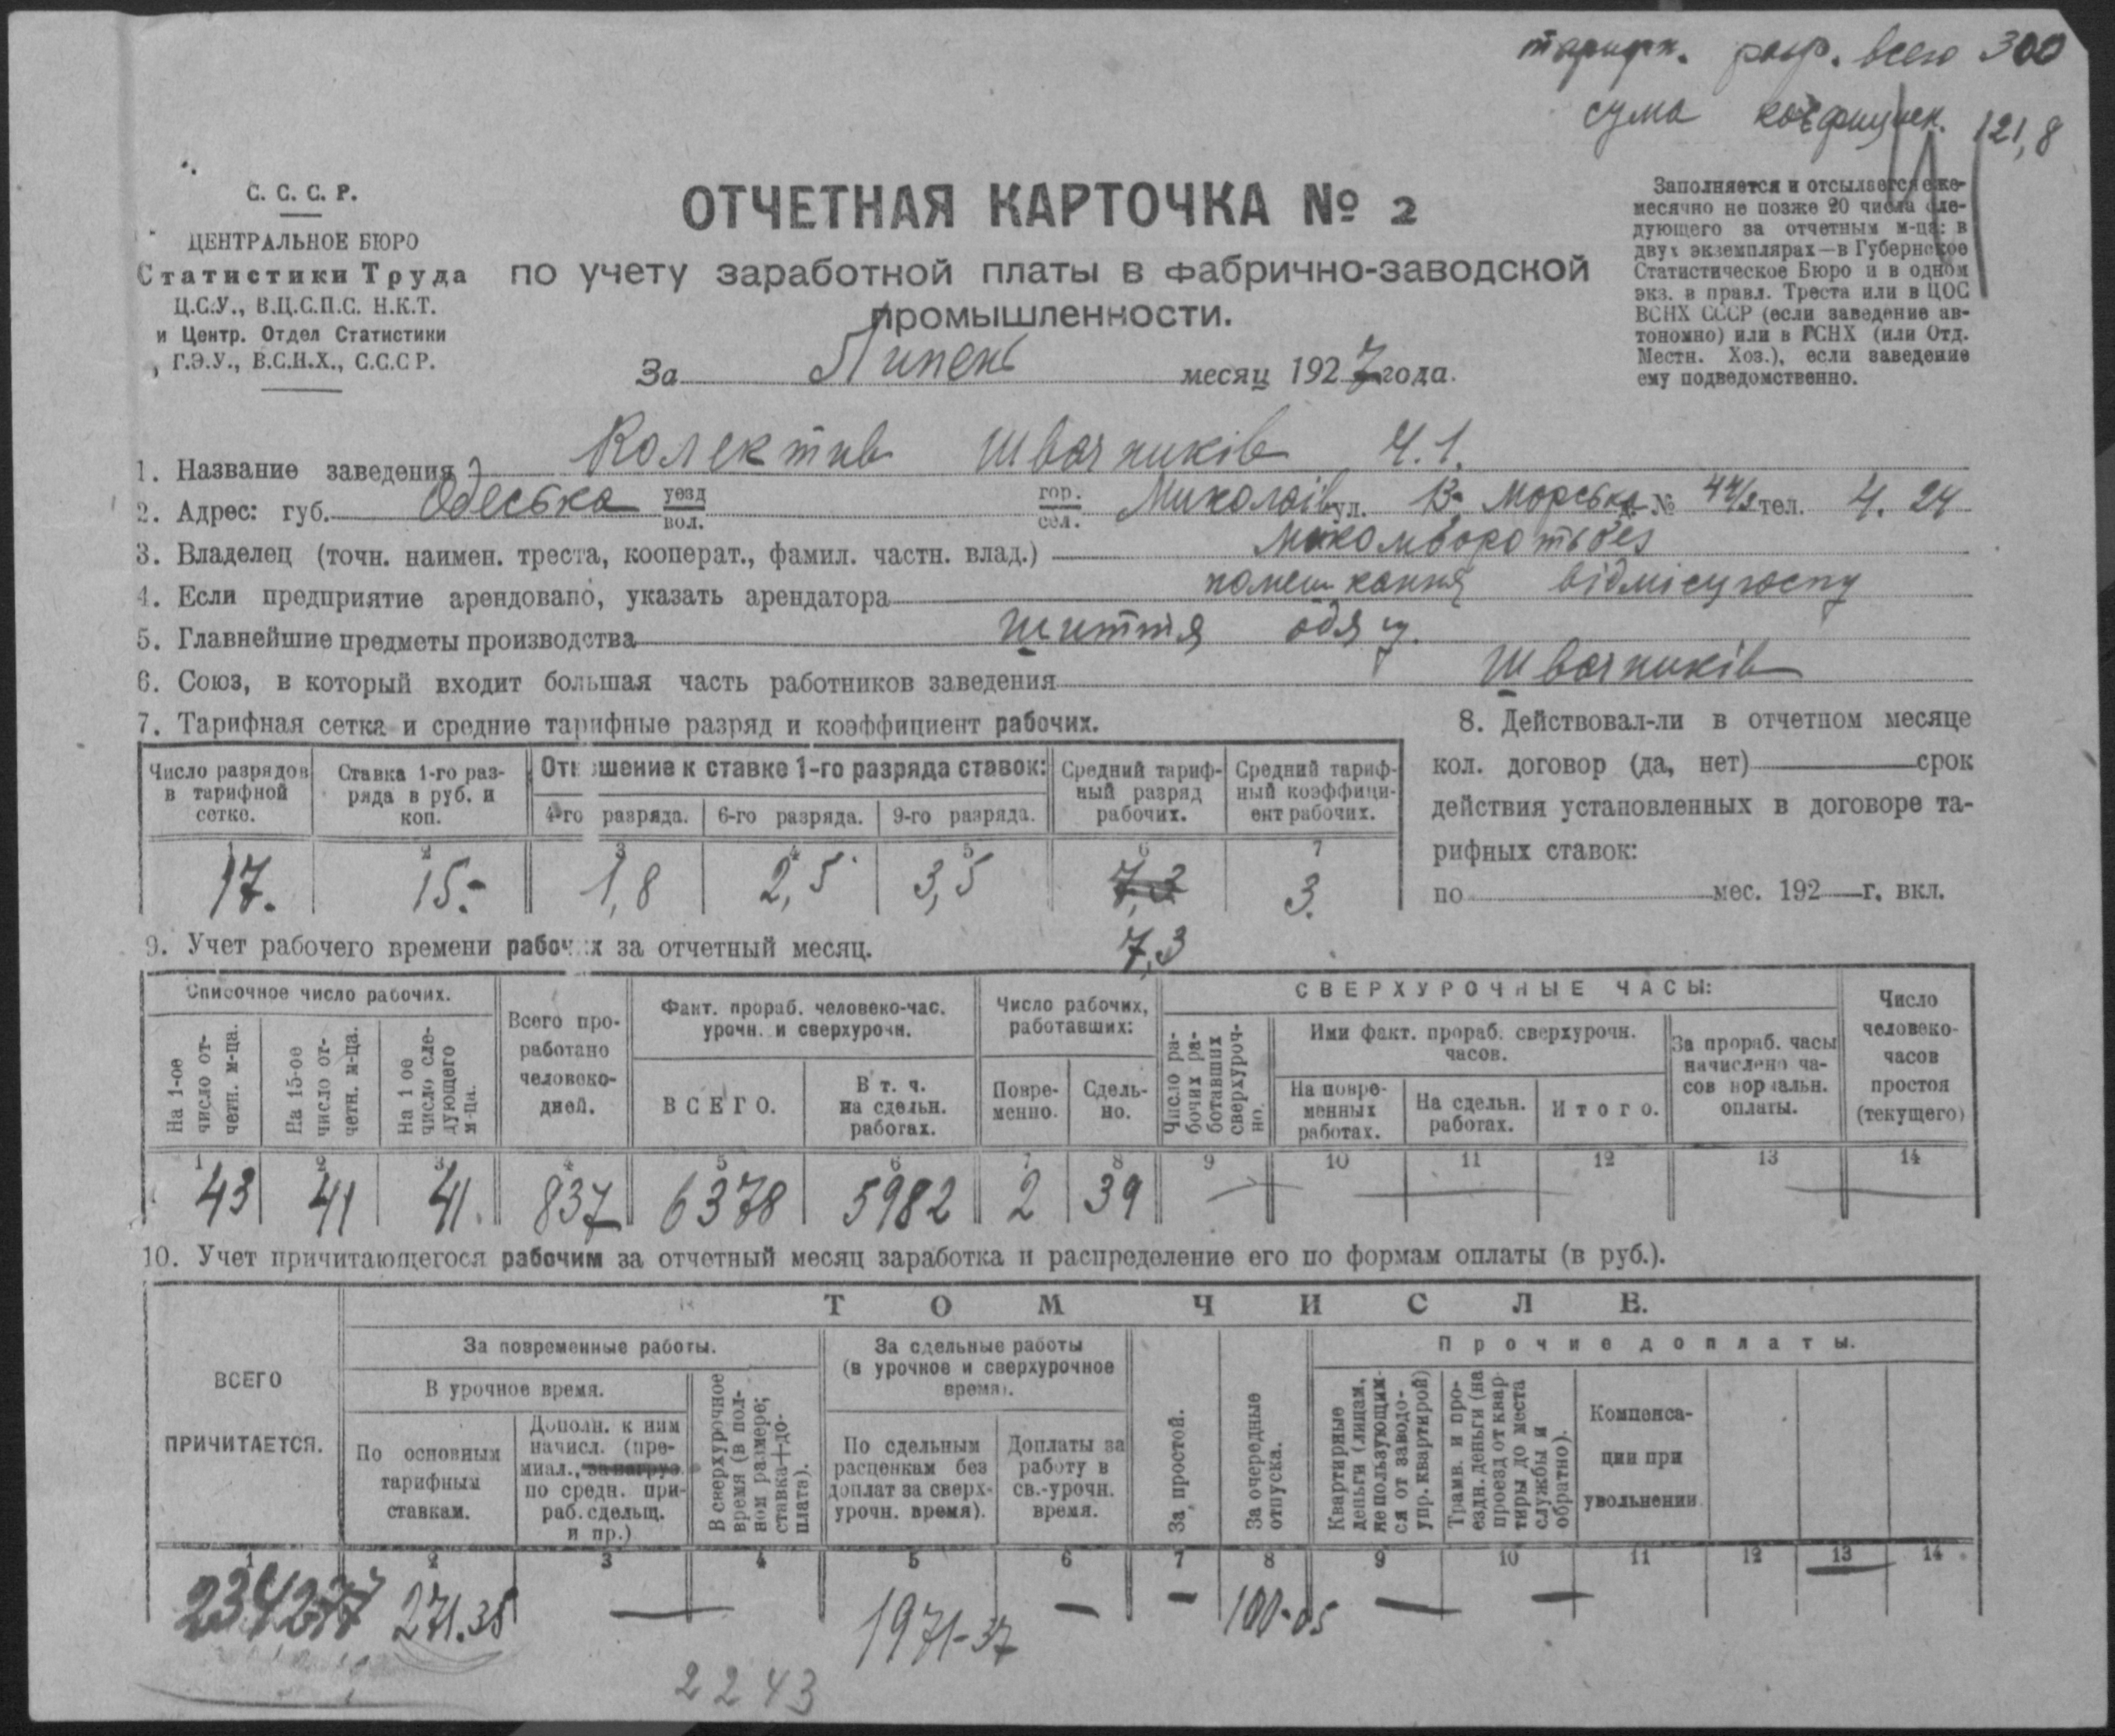 тарифн. розр. всего 300
сума коефициєн. 121,8
С. С. С. Р.
ЦЕНТРАЛЬНОЕ БЮРО
Статистики Труда
Ц.С.У., В.Ц.С.П.С. Н.К.Т.
и Центр. Отдел Статистики
Г.Э.У., В.С.Н.Х., С.С.С Р.
ОТЧЕТНАЯ КАРТОЧКА № 2
по учету заработной платы в фабрично-заводской
промышленности.
За Липень месяц 1927 года.
Заполняется и отсылается еже-
месячно не позже 20 числа сле-
дующего за отчетным м-ца: в
двух экземплярах—в Губернское
Статистическое Бюро и в одном
экз. в правл. Треста или в ЦОС
ВСНХ СССР (если заведение ав-
тономно) или в ГСНХ (или Отд.
Местн. Хоз.), если заведение
ему подведомственно.
1. Название заведения Колектив Швачників Ч.1.
2. Адрес: губ. Одеська уезд вол. гор. сел. Миколаїв ул. В. Морська № 44/2 тел. 4. 24
3. Владелец (точн. наимен. треста, кооперат., фамил. частн. влад.)
4. Если предприятие арендовано, указать арендатора помешкання
5. Главнейшие предметы производства шиття одягу.
6. Союз, в который входит большая часть работников заведения Швачників
7. Тарифная сетка и средние тарифные разряд и коэффициент рабочих.
Число разрядов в тарифной сетке.
Ставка 1-го раз-ряда в руб. и коп.
Отношение к ставке 1-го разряда ставок:
4-го разряда. 6-го разряда. 9-го разряда.
Средний тариф-ный разряд рабочих.
Средний тариф-ный коэффици-ент рабочих.
1 2 3 4 5 6 7
17. 15.- 1,8 2,5 3,5 7,3 3.
7,3
8. Действовал-ли в отчетном месяце
кол. договор (да, нет) срок
действия установленных в договоре та-
рифных ставок:
по мес. 192 г. вкл.
9. Учет рабочего времени рабочих за отчетный месяц.
Списочное число рабочих.
На 1-ое число от-четн. м-ца.
На 15-ое число от-четн. м-ца.
На 1 ое число сле-дующего м-ца.
Всего про-работано человеко-дней.
Факт. прораб. человеко-час. урочн. и сверхурочн.
ВСЕГО.
В т. ч. на сдельн. работах.
Число рабочих, работавших:
Повре-менно.
Сдель-но.
СВЕРХУРОЧНЫЕ ЧАСЫ:
Число ра-бочих ра-ботавших сверхуроч-но.
Ими факт. прораб. сверхурочн. часов.
На повре-менных работах.
На сдельн. работах.
Итого.
За прораб. часы начислено ча-сов нормальн. оплаты.
Число человеко-часов простоя (текущего)
1 2 3 4 5 6 7 8 9 10 11 12 13 14
43 41 41. 837 6378 5982 2 39 — — —
10. Учет причитающегося рабочим за отчетный месяц заработка и распределение его по формам оплаты (в руб.).
ВСЕГО ПРИЧИТАЕТСЯ.
ТОМ ЧИСЛЕ.
За повременные работы.
В урочное время.
По основным тарифным ставкам.
Дополн. к ним начисл. (пре-миал., за нагруз. по средн. при-раб. сдельщ. и пр.)
В сверхурочное время (в пол-ном размере; ставка+до-плата).
За сдельные работы (в урочное и сверхурочное время).
По сдельным расценкам без доплат за сверх-урочн. время).
Доплаты за работу в св.-урочн. время.
За простой.
За очередные отпуска.
Прочие доплаты.
Квартирные деньги (лицам, не пользующим-ся от заводо-упр. квартирой)
Трамв. и про-ездн. деньги (на проезд от квар-тиры до места службы и обратно).
Компенса-ции при увольнении
1 2 3 4 5 6 7 8 9 10 11 12 13 14
234277 271.35 — 1971-37 — — 100-05 — — —
2243